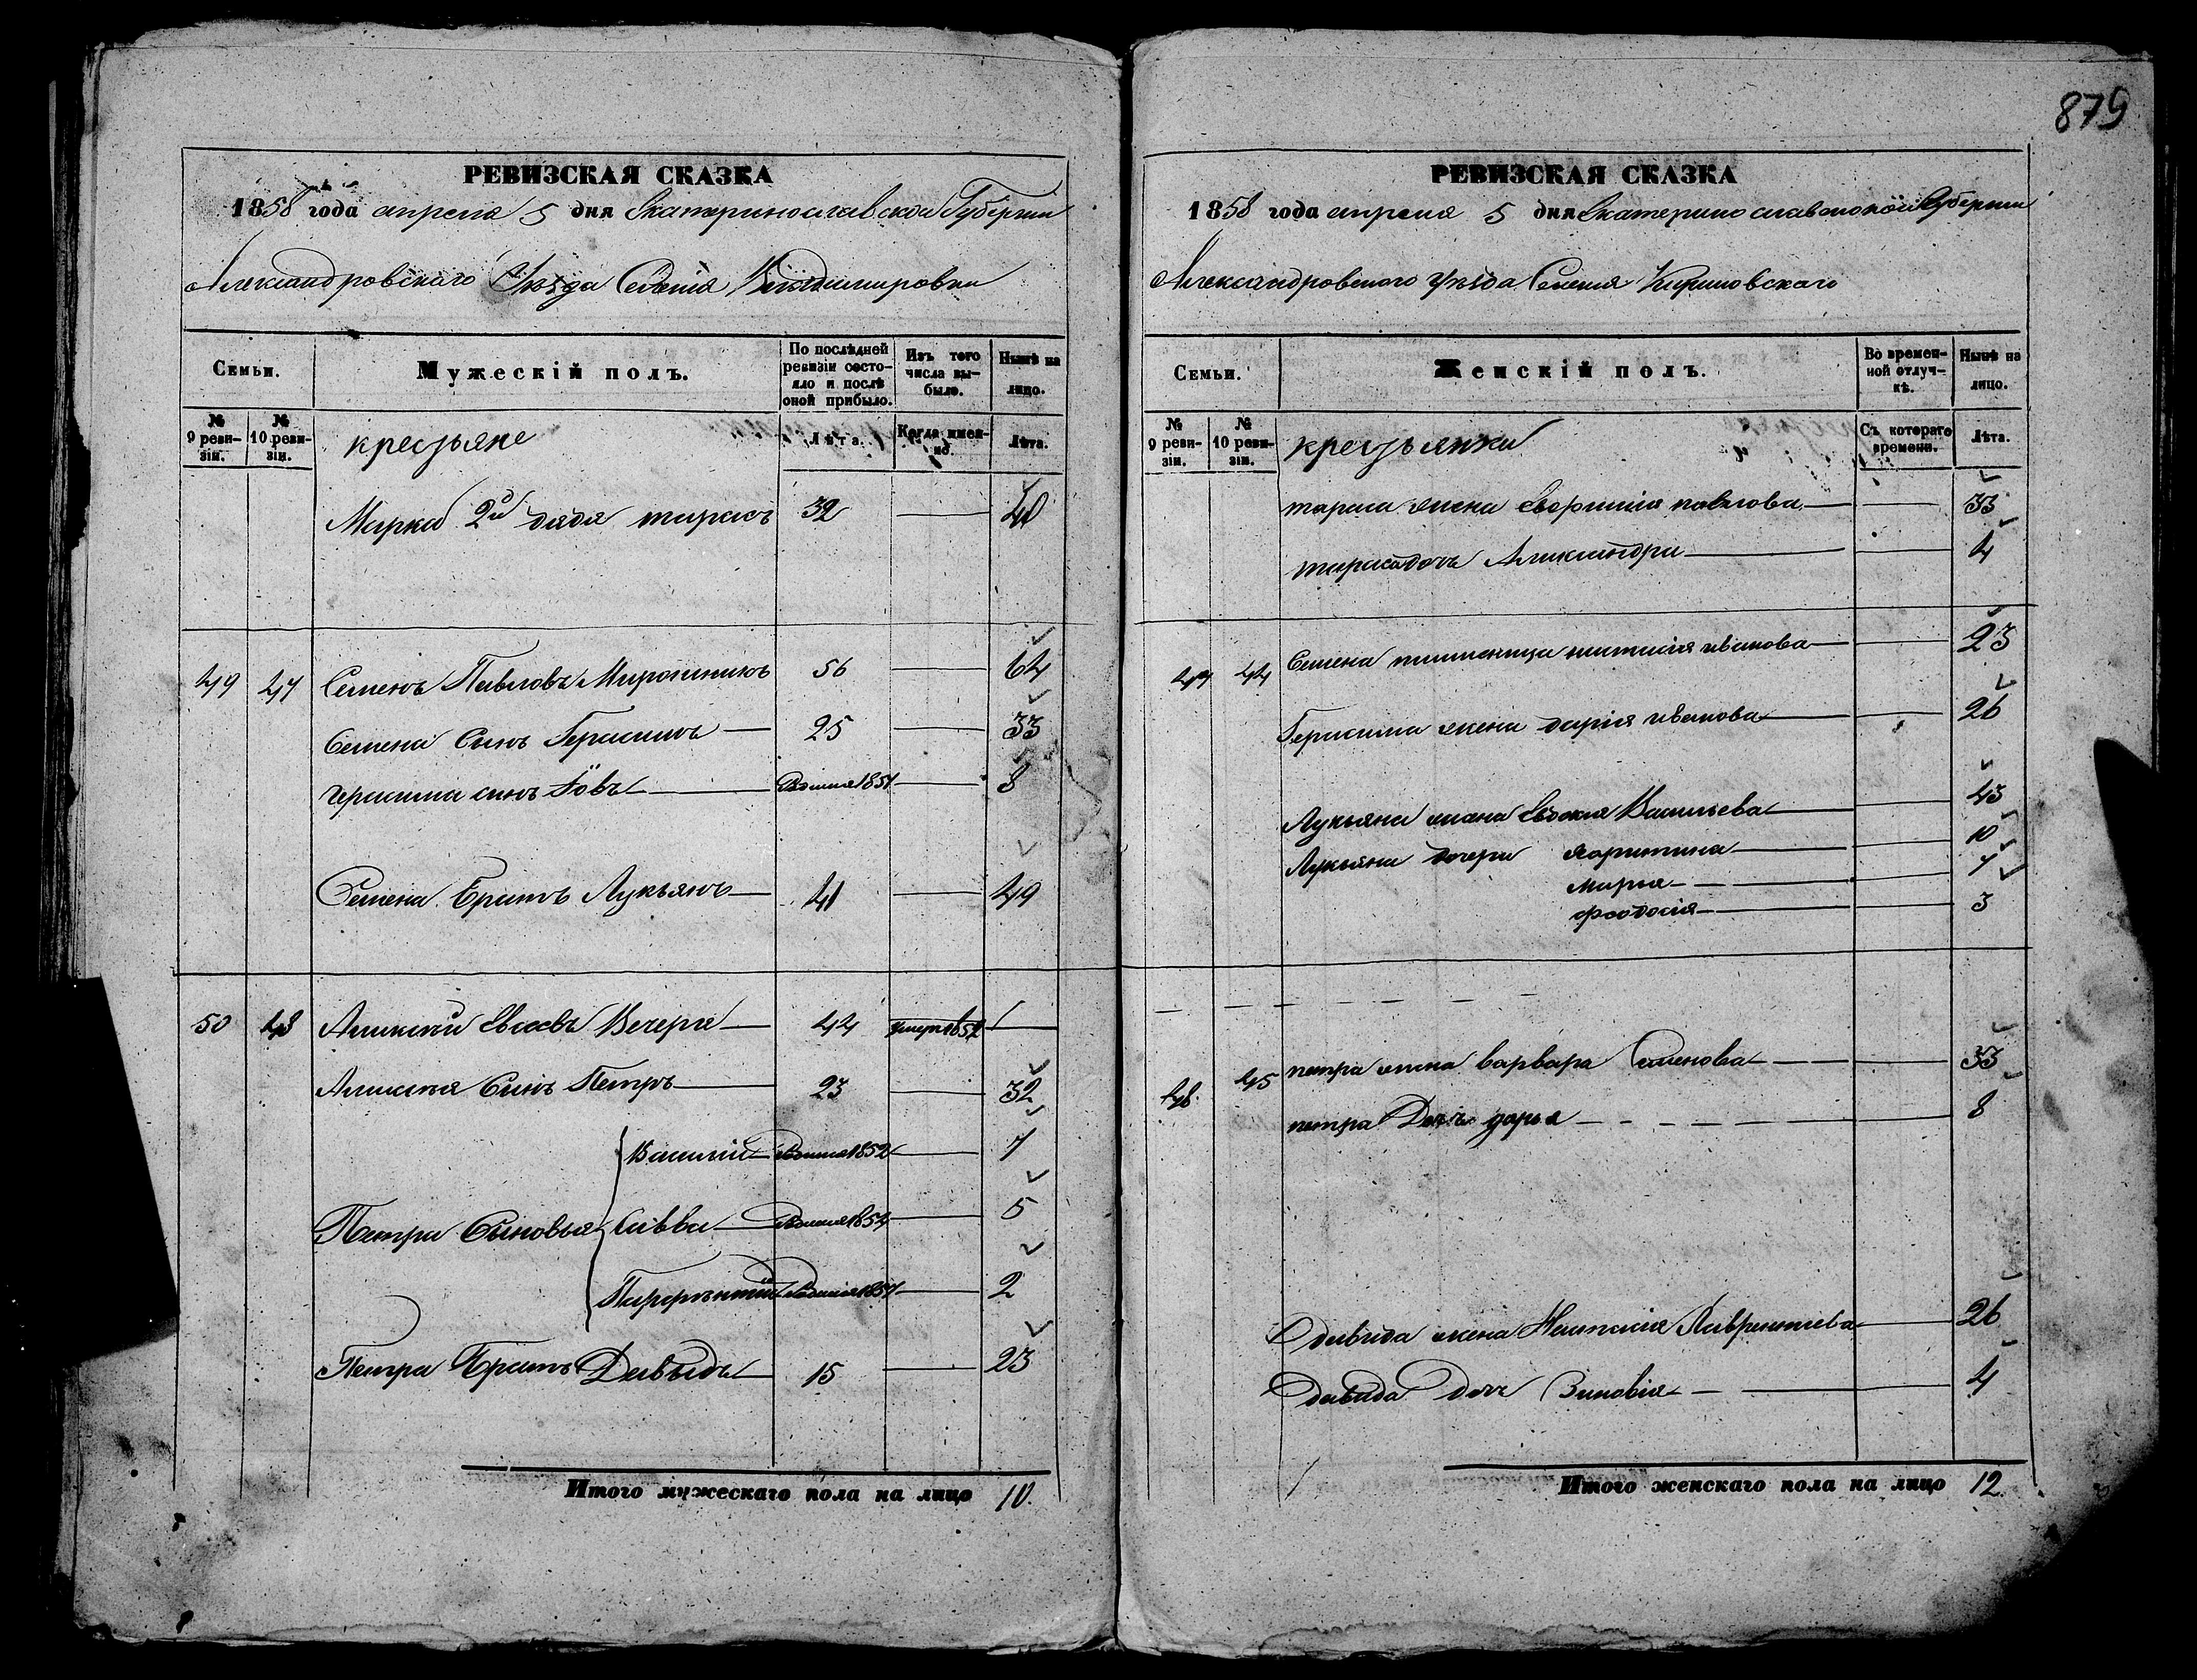 879
РЕВИЗСКАЯ СКАЗКА
1858 года апреля 5 дня Екатеринославской Губернии
Александровскаго Уезда Селения Владимировки
Семьи.
Мужескій полъ.
По послѣдней ревизіи состояло и послѣ оной прибыло.
Изъ того числа выбыло.
Нынѣ на лицо.
№ 9 ревизіи.
№ 10 ревизіи.
крестьяне
Лѣта.
Когда именно.
Лѣта.
Марка 2й дядя тарасъ 32 40
49 47 Семенъ Павловъ Мирошникъ 56 64
Семена Сынъ Герасимъ 25 33
герасима сынъ Іовъ 1851 8
Семена Братъ Лукьянъ 41 49
50 48 Алексѣй Евсеевъ Вечеря 44 умеръ 1852
Алексѣя Сынъ Петръ 23 32
Василий 1852 7
Петра Сыновья Савва 1854 5
Парфентий 1857 2
Петра Братъ Давыдъ 15 23
Итого мужескаго пола на лицо 10.
РЕВИЗСКАЯ СКАЗКА
1858 года апреля 5 дня Екатеринославской Губернии
Александровского уезда Селения
Семьи.
Женскій полъ.
Во временной отлучкѣ.
Нынѣ на лицо.
№ 9 ревизіи.
№ 10 ревизіи.
крестьянки
Съ котораго времени.
Лѣта.
тараса жена Евфросинія павлова 33
тараса дочь Александра 4
47 44 Семена племеница настасія иванова 23
Герасима жена дарія иванова 26
Лукьяна жена Евдокия Васильева 43
Лукьяна дочери Харитина 10
Марья 7
феодосія 3
48 45 петра жена варвара Семенова 33
петра Дочь дарья 8
давида жена Настасия Лаврентиева 26
Давида дочь Зиновія 4
Итого женскаго пола на лицо 12.